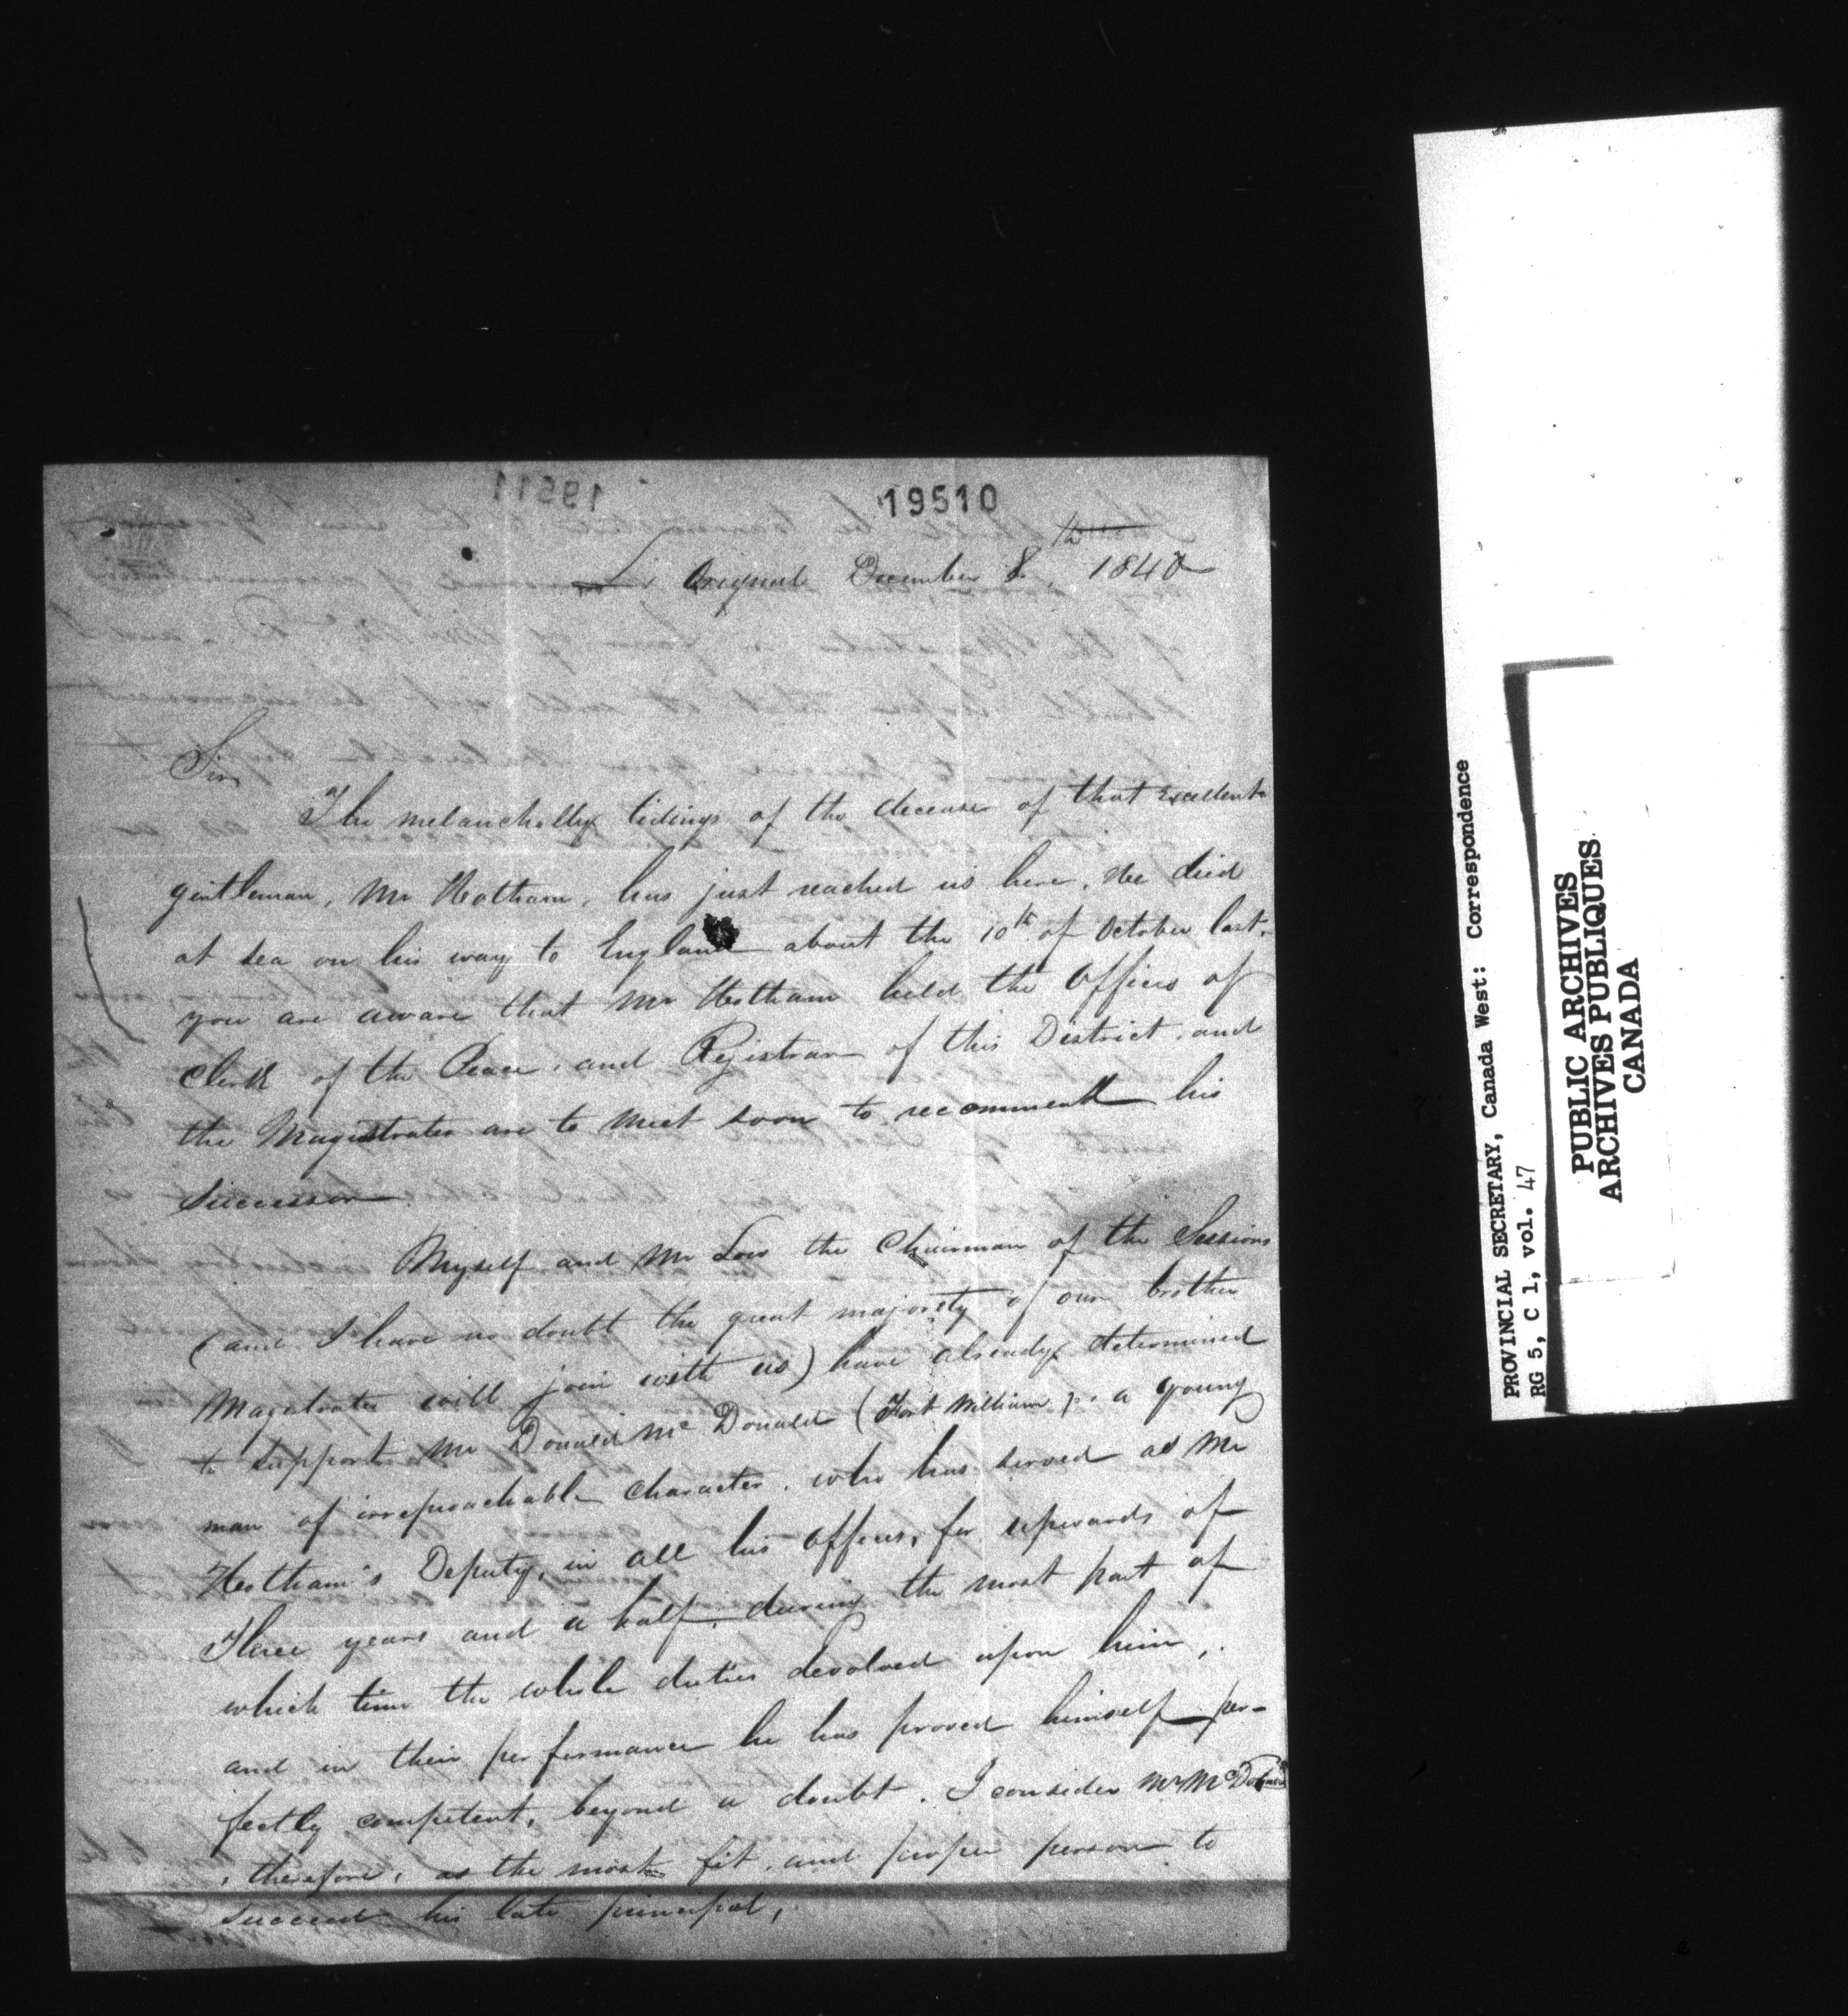 19510
L'Orignal December 8th 1840
Sir
The melancholly tidings of the decease of that Excellent
gentleman, Mr Hotham, has just reached us here, He died
at sea on his way to England about the 10th of October last.
you are aware that Mr Hotham held the Offices of
Clerk of the Peace, and Registrar of this District, and
the Magistrates are to meet soon to recommend his
Successor
Myself and Mr Low the Chairman of the Sessions
(and I have no doubt the great majority of our brother
Magistrates will join with us) have already determined
to support Mr Donald McDonald (Fort William), a young
man of irreproachable character, who has served as Mr
Hotham's Deputy, in all his offices, for upwards of
Three years and a half, during the most part of
which time the whole duties devolved upon him,
and in their performance he has proved himself per-
fectly competent, beyond a doubt. I consider Mr McDonald
, therefore, as the most fit and proper person to
succeed his late principal,
PROVINCIAL SECRETARY, Canada West: Correspondence
RG 5, C 1, vol. 47
PUBLIC ARCHIVES
ARCHIVES PUBLIQUES
CANADA